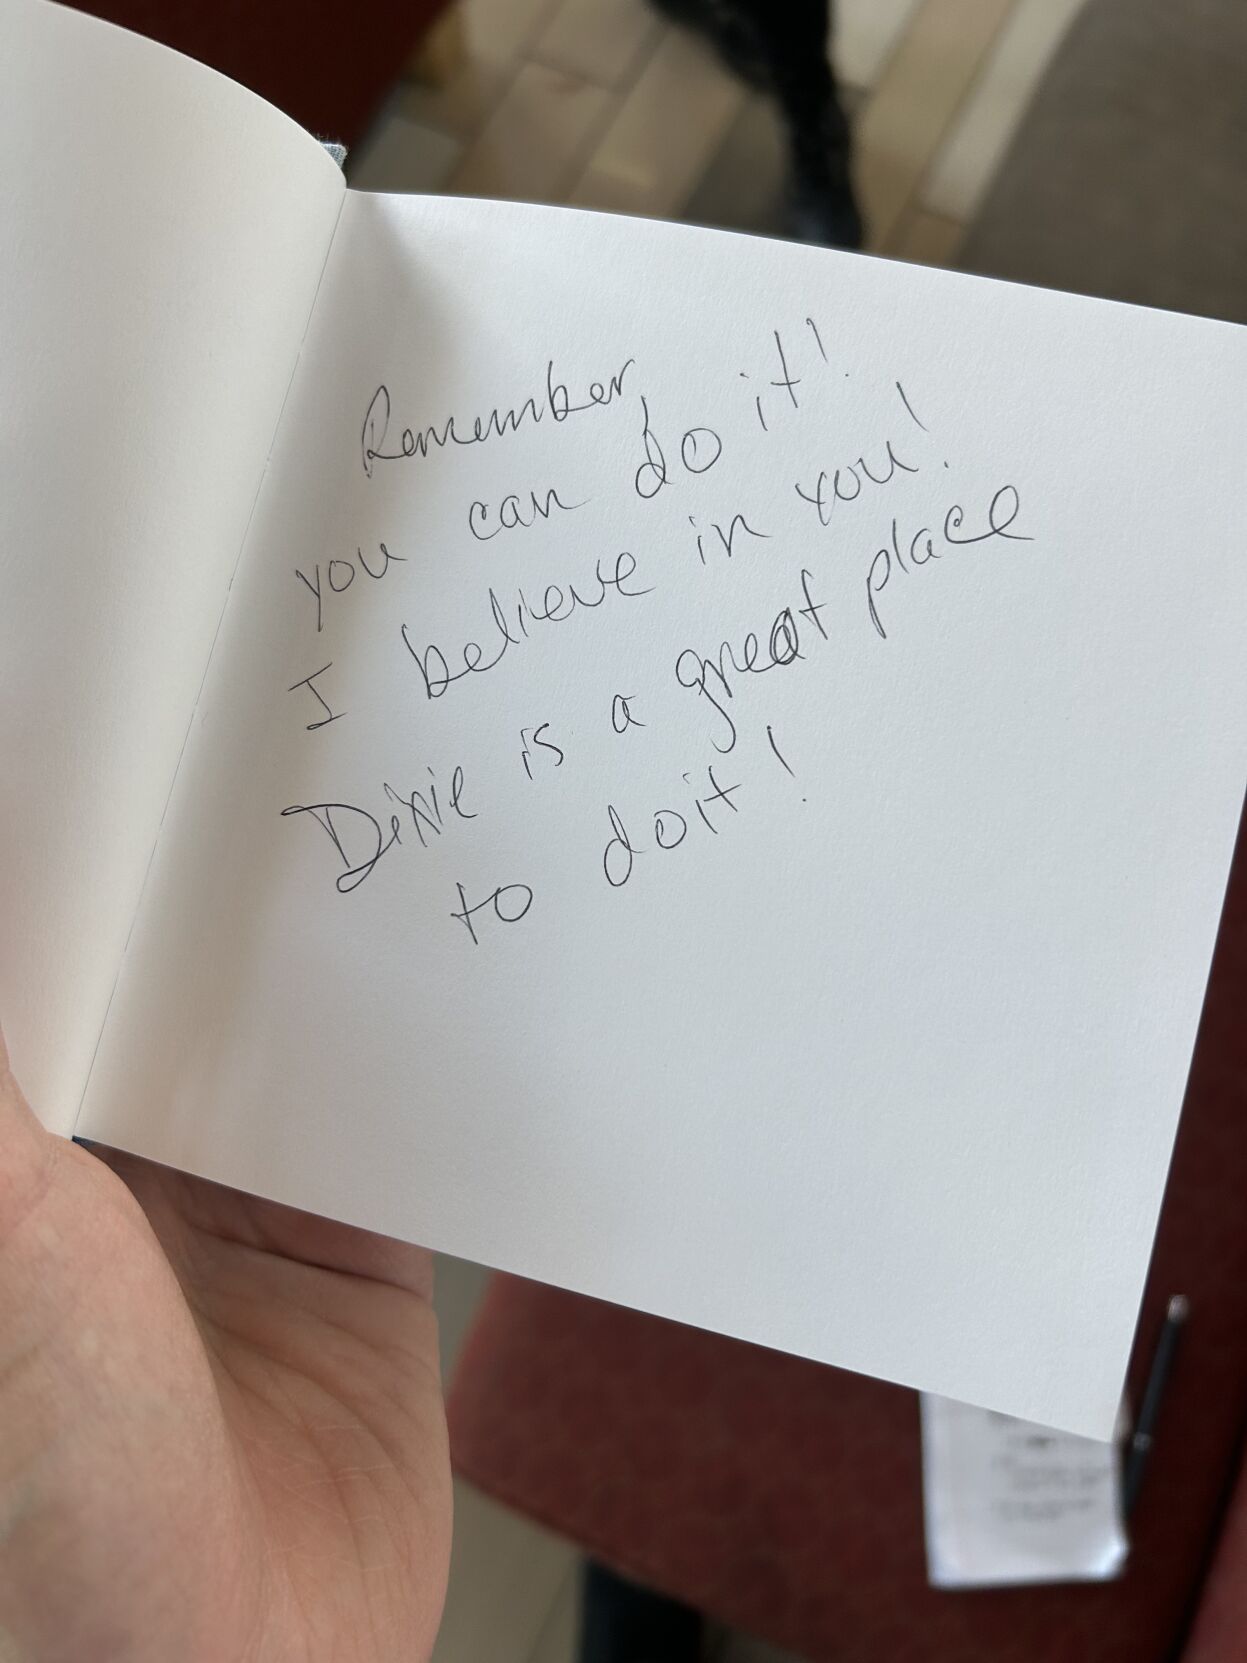 Remember,
you can do it!
I believe in you!
Dixie is a great place
to do it!